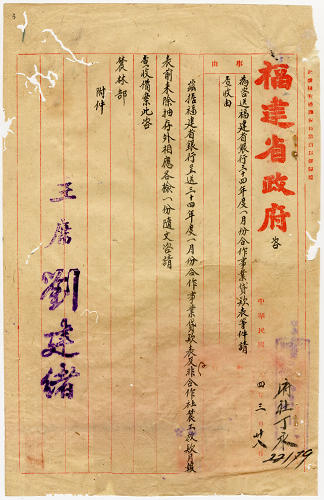 福建省政府 咨
事由
為咨送福建省銀行三十四年度一月份合作事業貸款表等件請
查收由
茲據福建省銀行呈送三十四年度一月份合作事業貸款表及非合作社農工放款月報
表前來除抽存外相應各檢一份隨文咨請
查收備案此咨
農林部
附件
主席 劉建緒
中華民國
四 三 廿八
府社丁永
22179